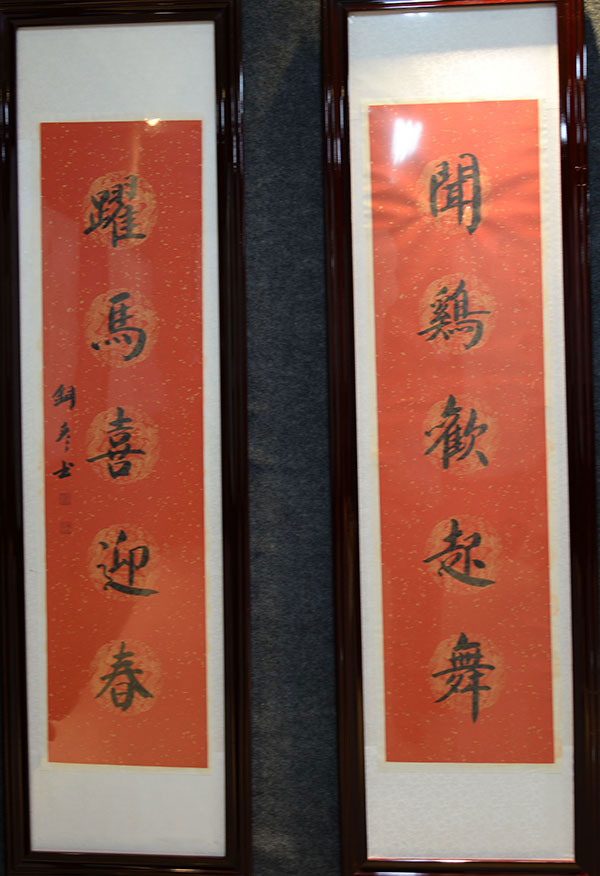 聞鷄歡起舞
躍馬喜迎春